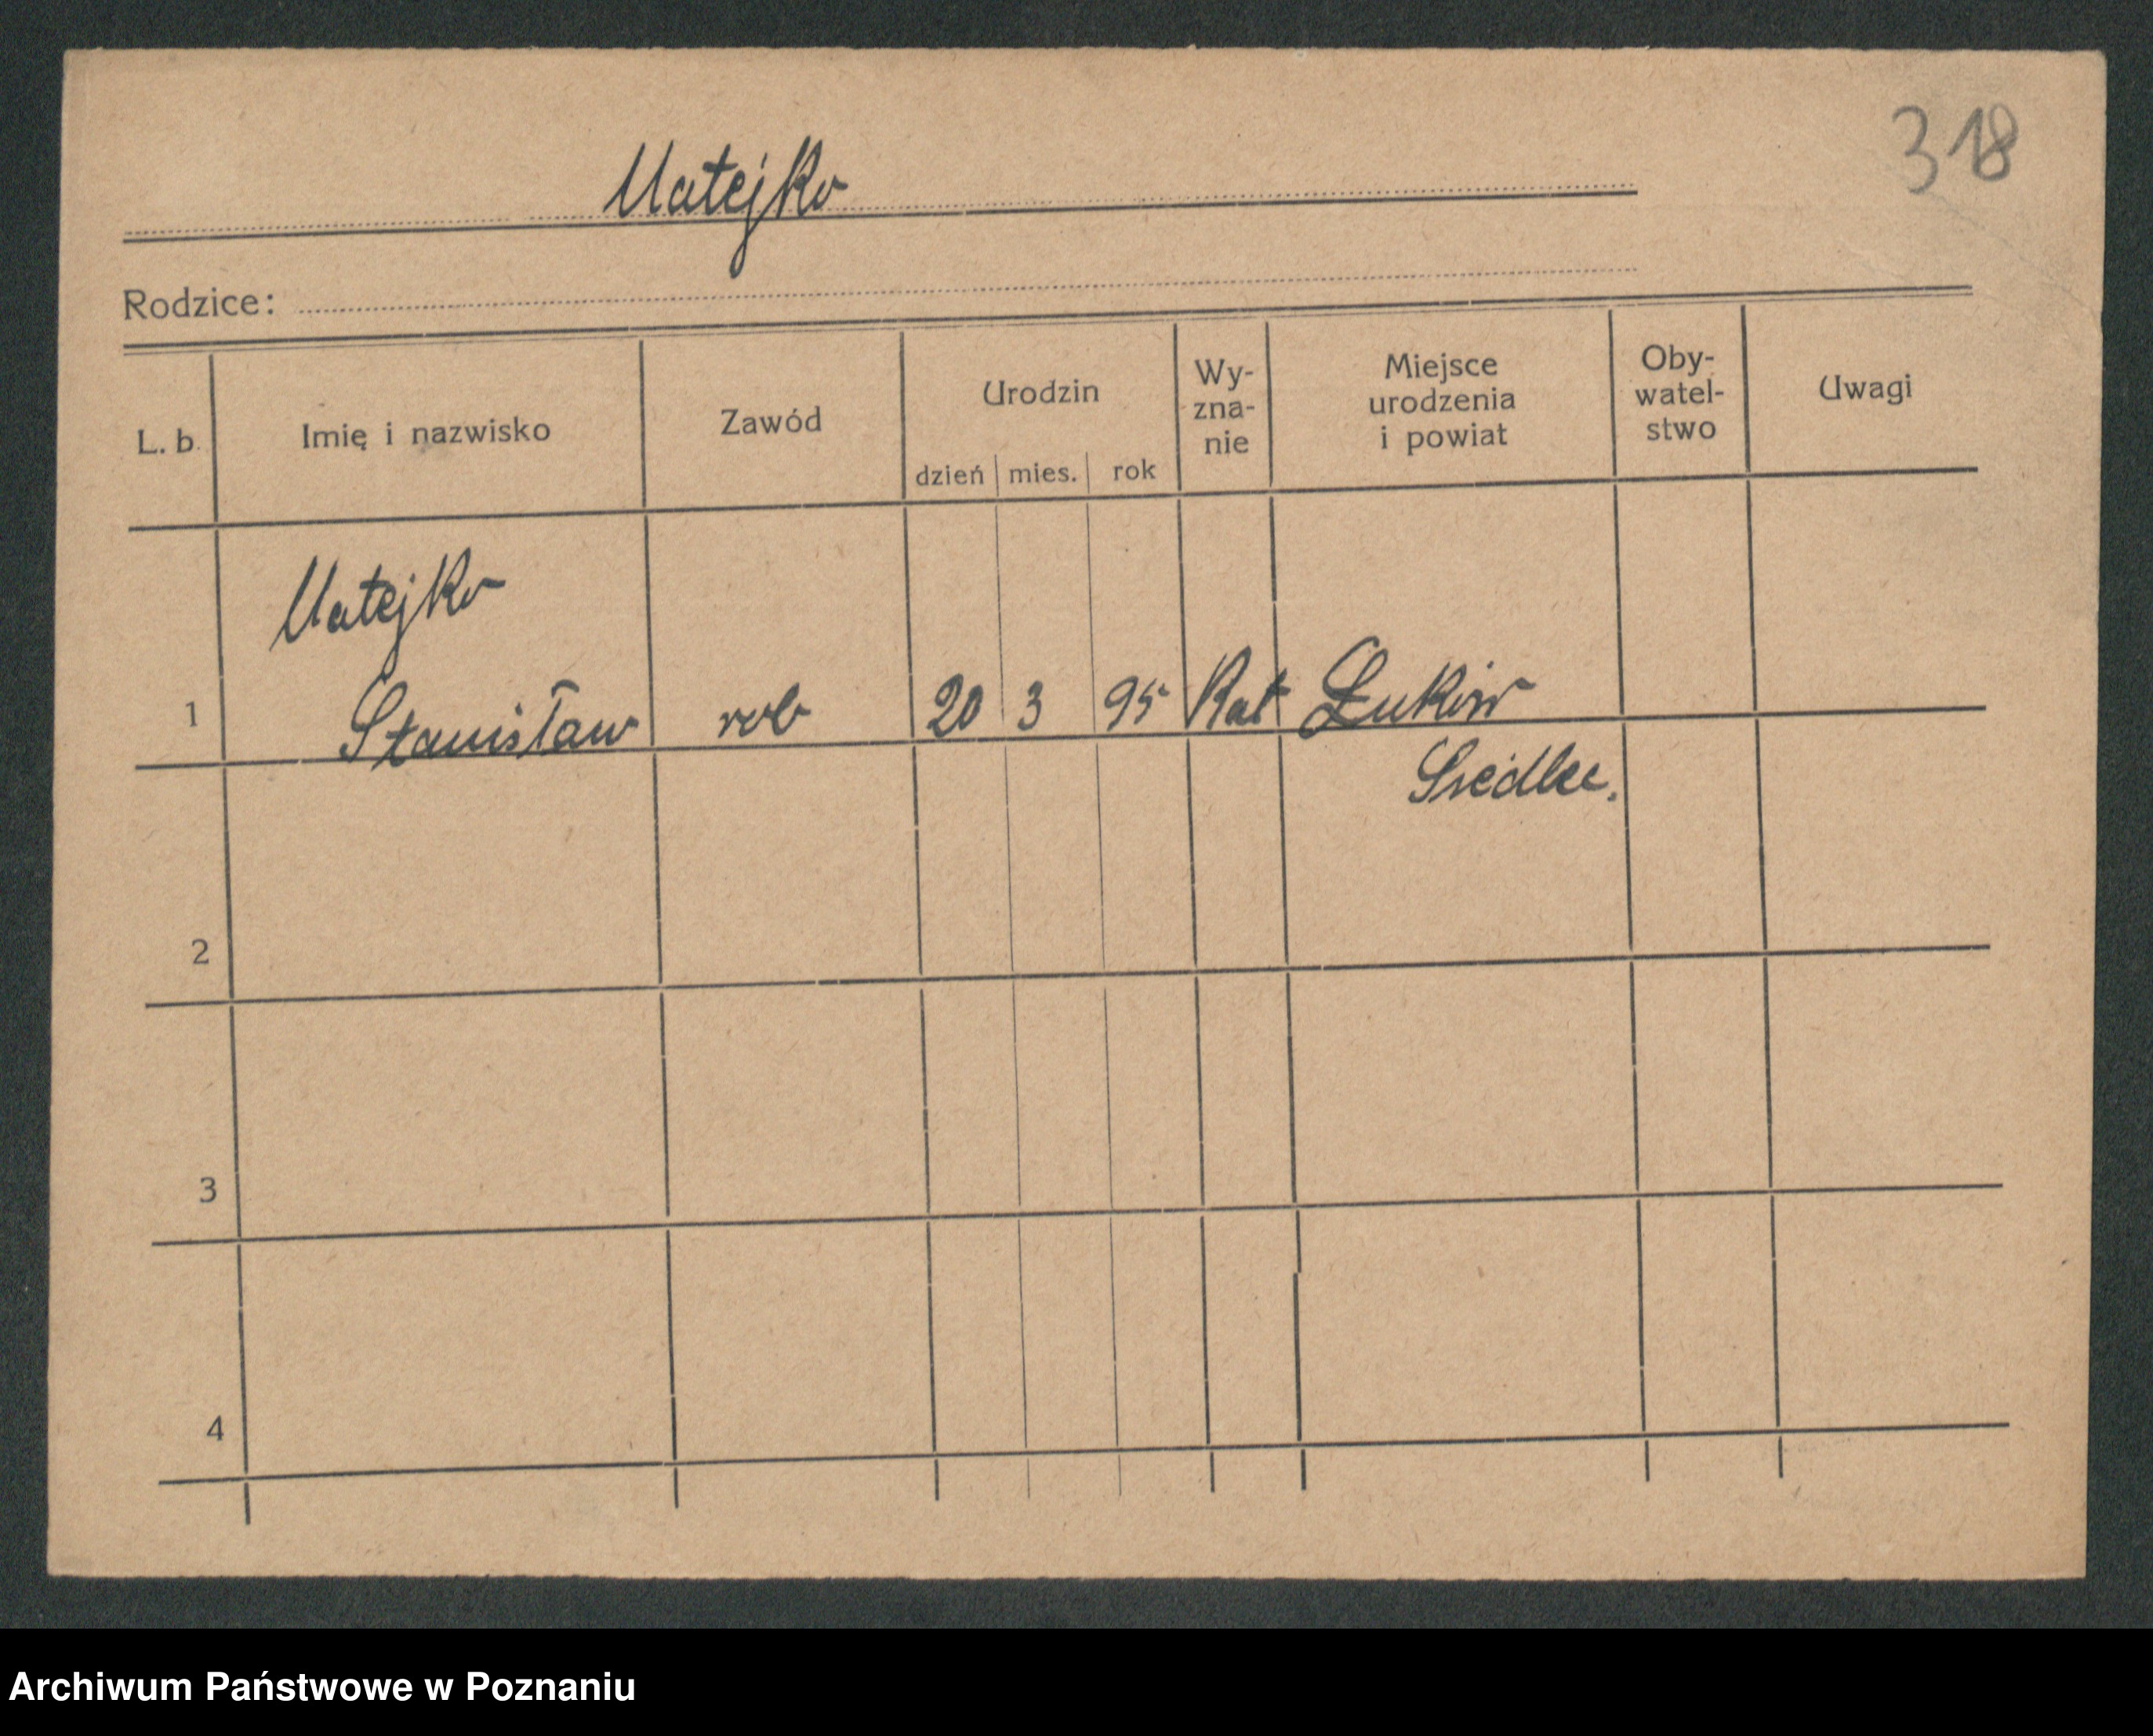 318
Matejko
Rodzice:
L. b. Imię i nazwisko Zawód Urodzin dzień mies. rok Wy-zna-nie Miejsce urodzenia i powiat Oby-watel-stwo Uwagi
Matejko
1 Stanisław rob 20 3 95 Kat Łuków
Siedlce.
2
3
4
Archiwum Państwowe w Poznaniu